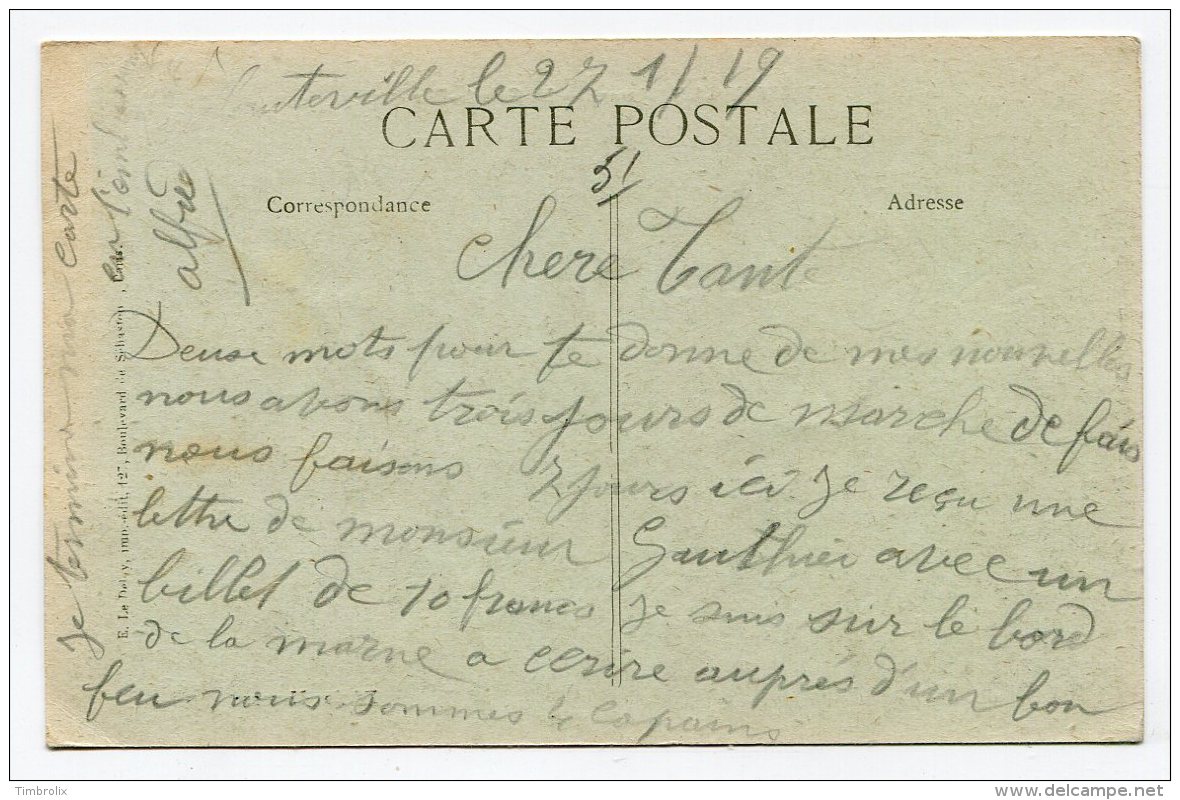 le 27 1/ 19
CARTE POSTALE
51
Correspondance
Adresse
chere Tant
Deuse mots pour te donne de mes nouvelles
nous avons trois jours de marche de fais
nous faisons 2 jours ici. Je reçu une
lettre de monsieur Gauthier avec un
billet de 10 francs Je suis sur le bord
de la marne a ecrire auprés d'un bon
feu nous sommes copains
Je termine ma carte
en
alfred
E. Le Deley, imp.-édit., 127, Boulevard de Sébastopol, Paris.
© Timbrolix
delcampe.net